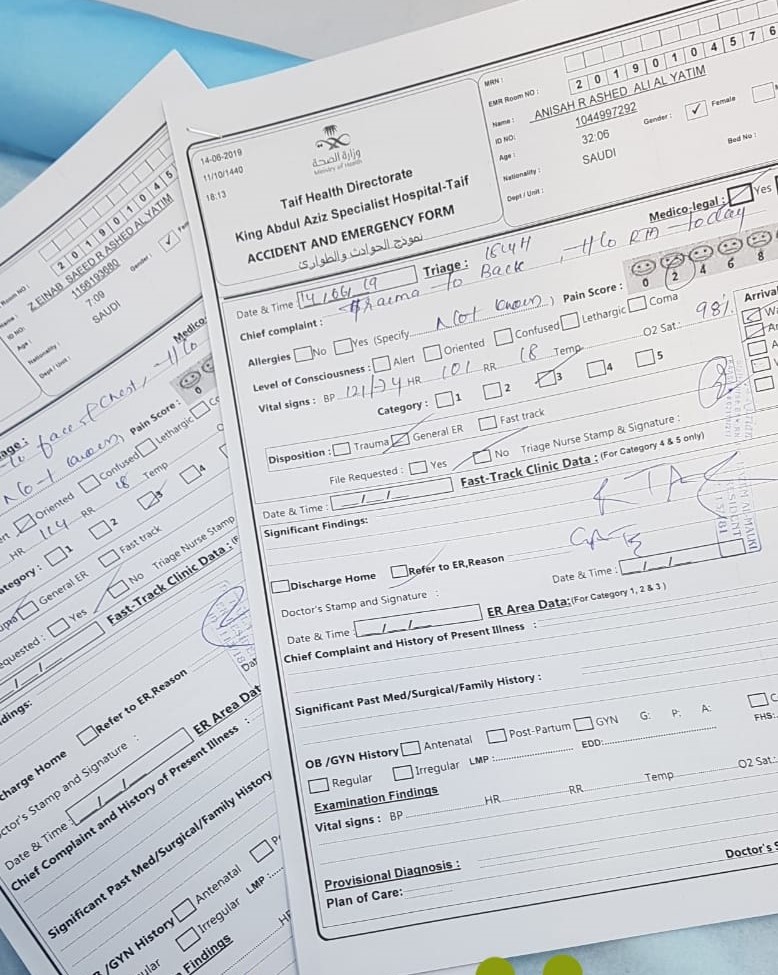 MRN :
2 0 1 9 0 1 0 4 5 7 6
EMR Room NO :
Name : ANISAH R ASHED ALI AL YATIM
ID NO: 1044997292
Gender : ✓ Female
Age : 32:06
Nationality : SAUDI
Bed No :
Dept / Unit :
14-06-2019
11/10/1440
18:13
وزارة الصحة
Ministry of Health
Taif Health Directorate
King Abdul Aziz Specialist Hospital-Taif
ACCIDENT AND EMERGENCY FORM
نموذج الحوادث والطوارئ
Medico-legal : Yes
Date & Time 14/06/19 Triage :
Chief complaint : Trauma to Back, H/o RTA today
Allergies No Yes (Specify Not known) Pain Score : 0 2 4 6 8
Level of Consciousness : Alert Oriented Confused Lethargic Coma
Vital signs : BP 121/74 HR 101 RR 18 Temp O2 Sat: 98%
Arrival
Category : 1 2 3 4 5
Disposition : Trauma General ER Fast track
File Requested : Yes No Triage Nurse Stamp & Signature :
Date & Time : / / Fast-Track Clinic Data : (For Category 4 & 5 only)
Significant Findings:
RTA
Discharge Home Refer to ER,Reason
Doctor's Stamp and Signature : Date & Time : / /
Date & Time / / ER Area Data:(For Category 1, 2 & 3 )
Chief Complaint and History of Present Illness :
Significant Past Med/Surgical/Family History :
OB /GYN History Antenatal Post-Partum GYN G: P: A:
Regular Irregular LMP : EDD: FHS:
Examination Findings
Vital signs : BP HR RR Temp O2 Sat:
Provisional Diagnosis :
Plan of Care:
Doctor's S
2 0 1 9 0 1 0 4 5
Room NO :
Name : Z EINAB SAEED R ASHED AL YATIM
ID NO: 1156193680
Gender : ✓ Fem
Age : 7:09
Nationality : SAUDI
Dept / Unit :
Medico
age :
to face & Chest, H/o
Not known Pain Score : 0
Oriented Confused Lethargic Co
HR 114 RR 18 Temp
ategory : 1 2 3 4
General ER Fast track
equested : Yes No Triage Nurse Stamp
/ / Fast-Track Clinic Data : (F
dings:
charge Home Refer to ER,Reason
ctor's Stamp and Signature : Dat
Date & Time / / ER Area Dat
Chief Complaint and History of Present Illness :
Significant Past Med/Surgical/Family History
/GYN History Antenatal P
ular Irregular LMP :
Findings HR